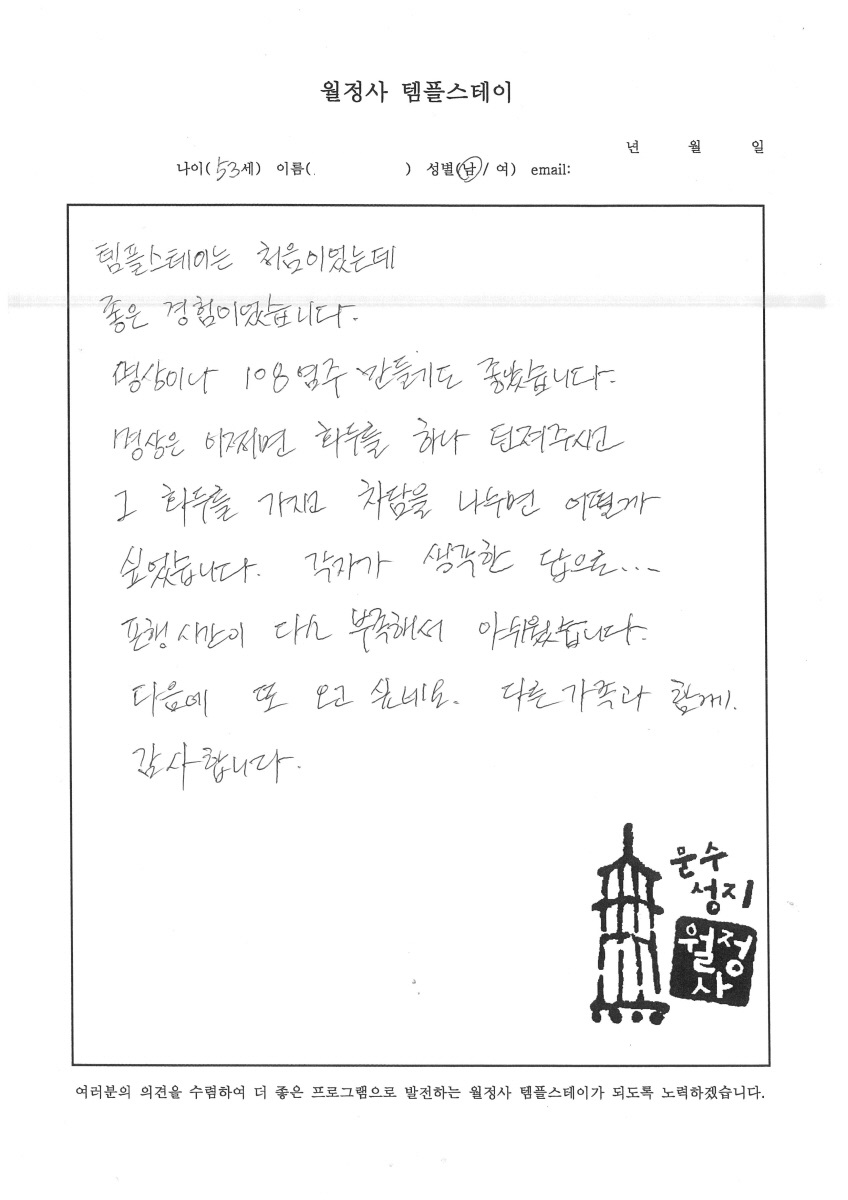 월정사 템플스테이
년 월 일
나이( 53세) 이름( ) 성별(남/ 여) email:
템플스테이는 처음이었는데
좋은 경험이었습니다.
명상이나 108염주 만들기도 좋았습니다.
명상은 어쩌면 화두를 하나 던져주시고
그 화두를 가지고 차담을 나누면 어떨까
싶었습니다. 각자가 생각한 답으로...
포행 시간이 다소 부족해서 아쉬웠습니다.
다음에 또 오고 싶네요. 다른 가족과 함께.
감사합니다.
문수
성지
월정
사
여러분의 의견을 수렴하여 더 좋은 프로그램으로 발전하는 월정사 템플스테이가 되도록 노력하겠습니다.